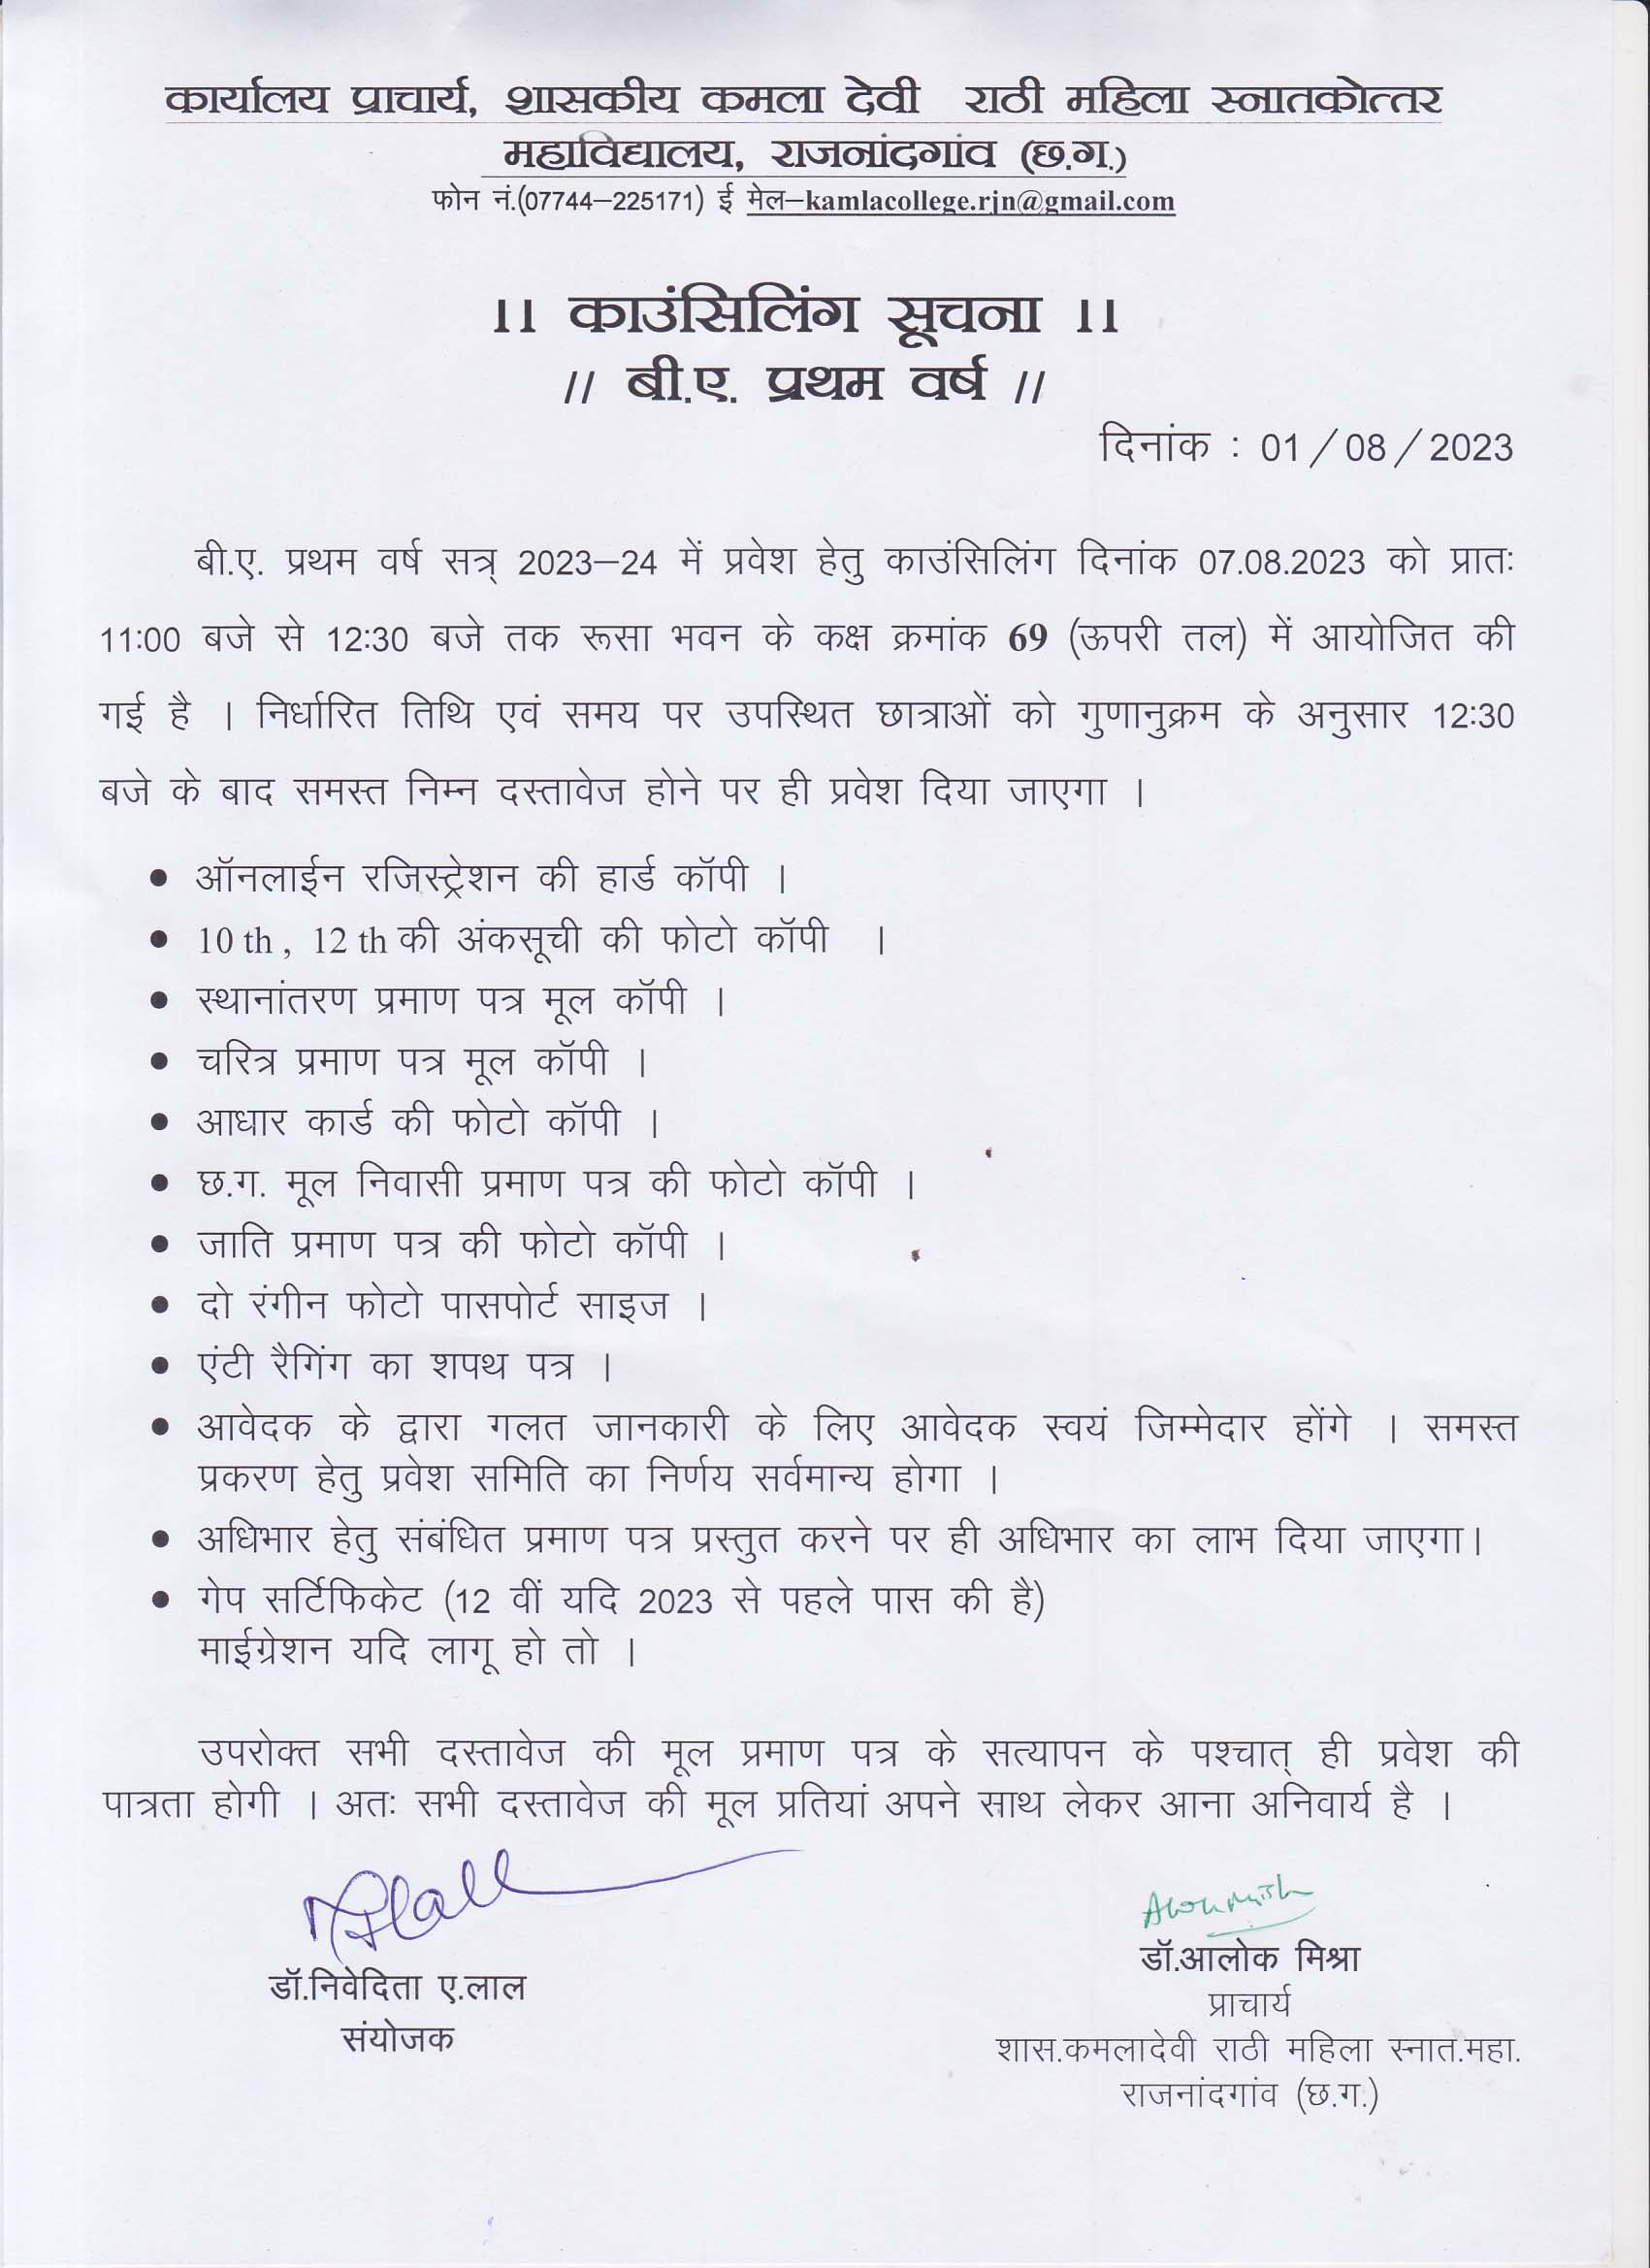 कार्यालय प्राचार्य, शासकीय कमला देवी राठी महिला स्नातकोत्तर
महाविद्यालय, राजनांदगांव (छ.ग.)
फोन नं.(07744–225171) ई मेल–kamlacollege.rjn@gmail.com
।। काउंसिलिंग सूचना ।।
// बी.ए. प्रथम वर्ष //
दिनांक : 01/08/2023
बी.ए. प्रथम वर्ष सत्र् 2023–24 में प्रवेश हेतु काउंसिलिंग दिनांक 07.08.2023 को प्रातः
11:00 बजे से 12:30 बजे तक रूसा भवन के कक्ष क्रमांक 69 (ऊपरी तल) में आयोजित की
गई है । निर्धारित तिथि एवं समय पर उपस्थित छात्राओं को गुणानुक्रम के अनुसार 12:30
बजे के बाद समस्त निम्न दस्तावेज होने पर ही प्रवेश दिया जाएगा ।
• ऑनलाईन रजिस्ट्रेशन की हार्ड कॉपी ।
• 10 th , 12 th की अंकसूची की फोटो कॉपी ।
• स्थानांतरण प्रमाण पत्र मूल कॉपी ।
• चरित्र प्रमाण पत्र मूल कॉपी ।
• आधार कार्ड की फोटो कॉपी ।
• छ.ग. मूल निवासी प्रमाण पत्र की फोटो कॉपी ।
• जाति प्रमाण पत्र की फोटो कॉपी ।
• दो रंगीन फोटो पासपोर्ट साइज ।
• एंटी रैगिंग का शपथ पत्र ।
• आवेदक के द्वारा गलत जानकारी के लिए आवेदक स्वयं जिम्मेदार होंगे । समस्त
प्रकरण हेतु प्रवेश समिति का निर्णय सर्वमान्य होगा ।
• अधिभार हेतु संबंधित प्रमाण पत्र प्रस्तुत करने पर ही अधिभार का लाभ दिया जाएगा।
• गेप सर्टिफिकेट (12 वीं यदि 2023 से पहले पास की है)
माईग्रेशन यदि लागू हो तो ।
उपरोक्त सभी दस्तावेज की मूल प्रमाण पत्र के सत्यापन के पश्चात् ही प्रवेश की
पात्रता होगी । अतः सभी दस्तावेज की मूल प्रतियां अपने साथ लेकर आना अनिवार्य है ।
डॉ.निवेदिता ए.लाल
संयोजक
डॉ.आलोक मिश्रा
प्राचार्य
शास.कमलादेवी राठी महिला स्नात.महा.
राजनांदगांव (छ.ग.)